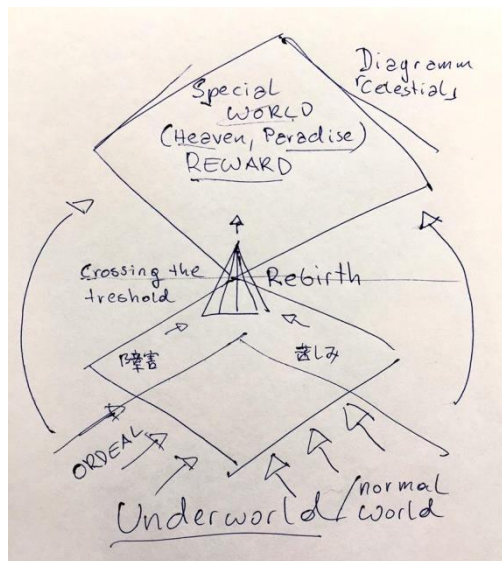 Diagramm
"Celestials"
Special
WORLD
(Heaven, Paradise)
REWARD
Crossing the
treshold
Rebirth
障害
ORDEAL
Underworld / normal
world